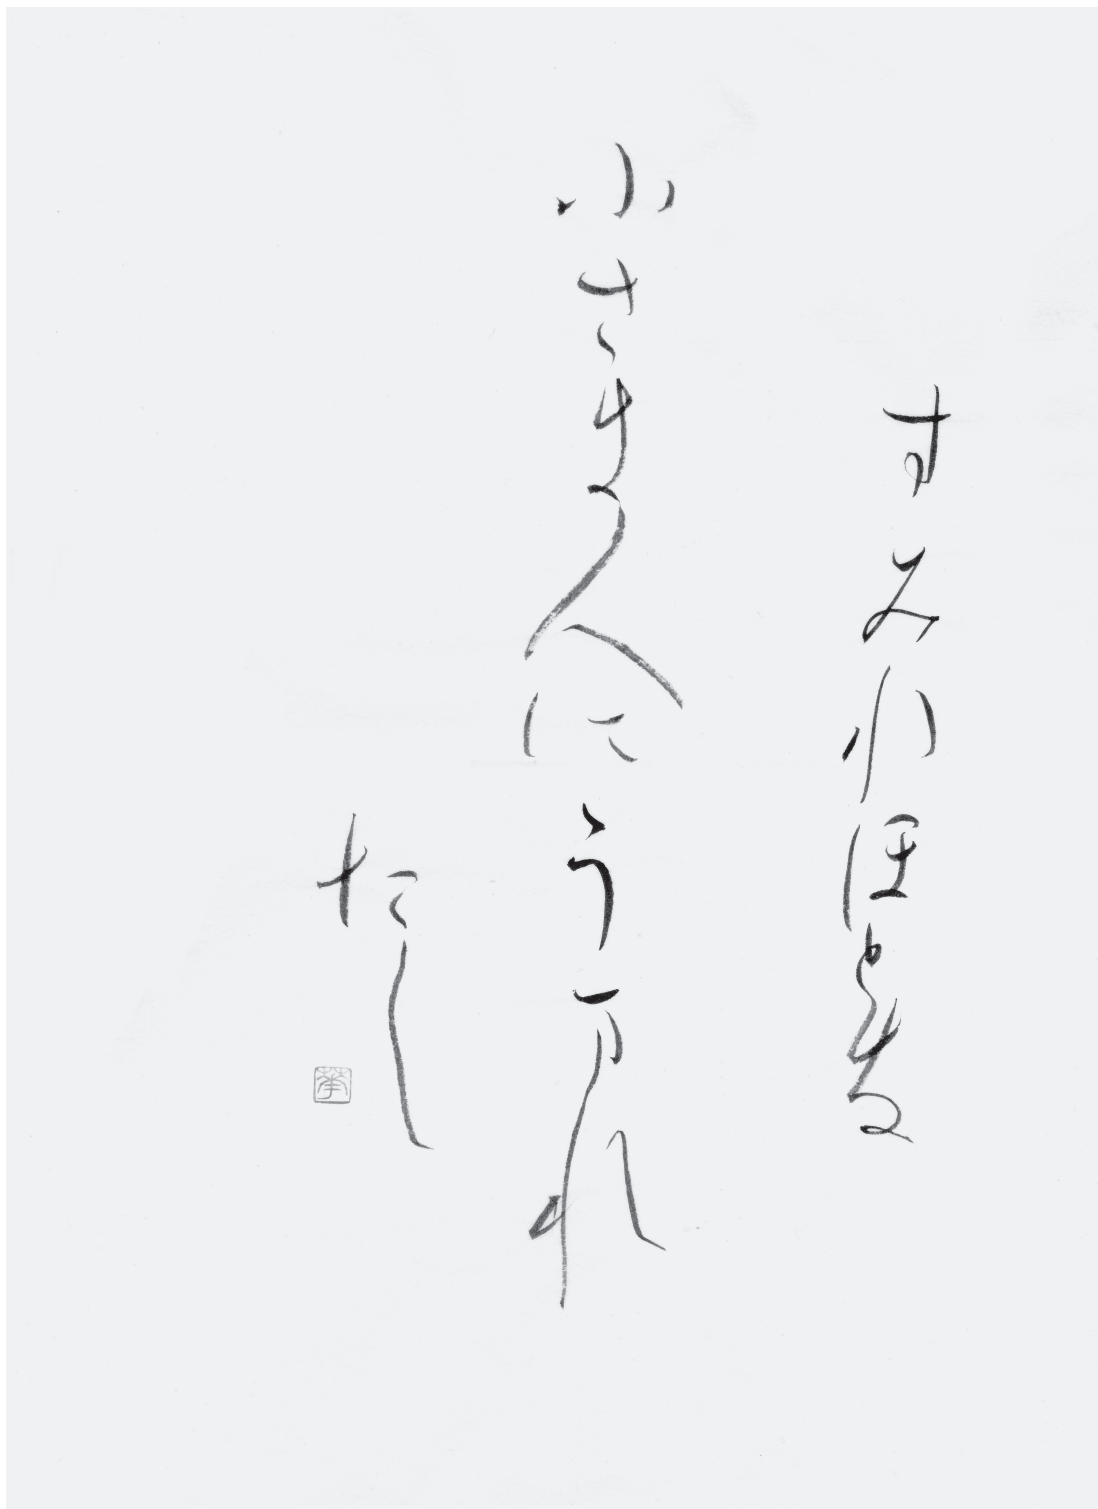 すみれほとな
小さき人にうまれ
たし